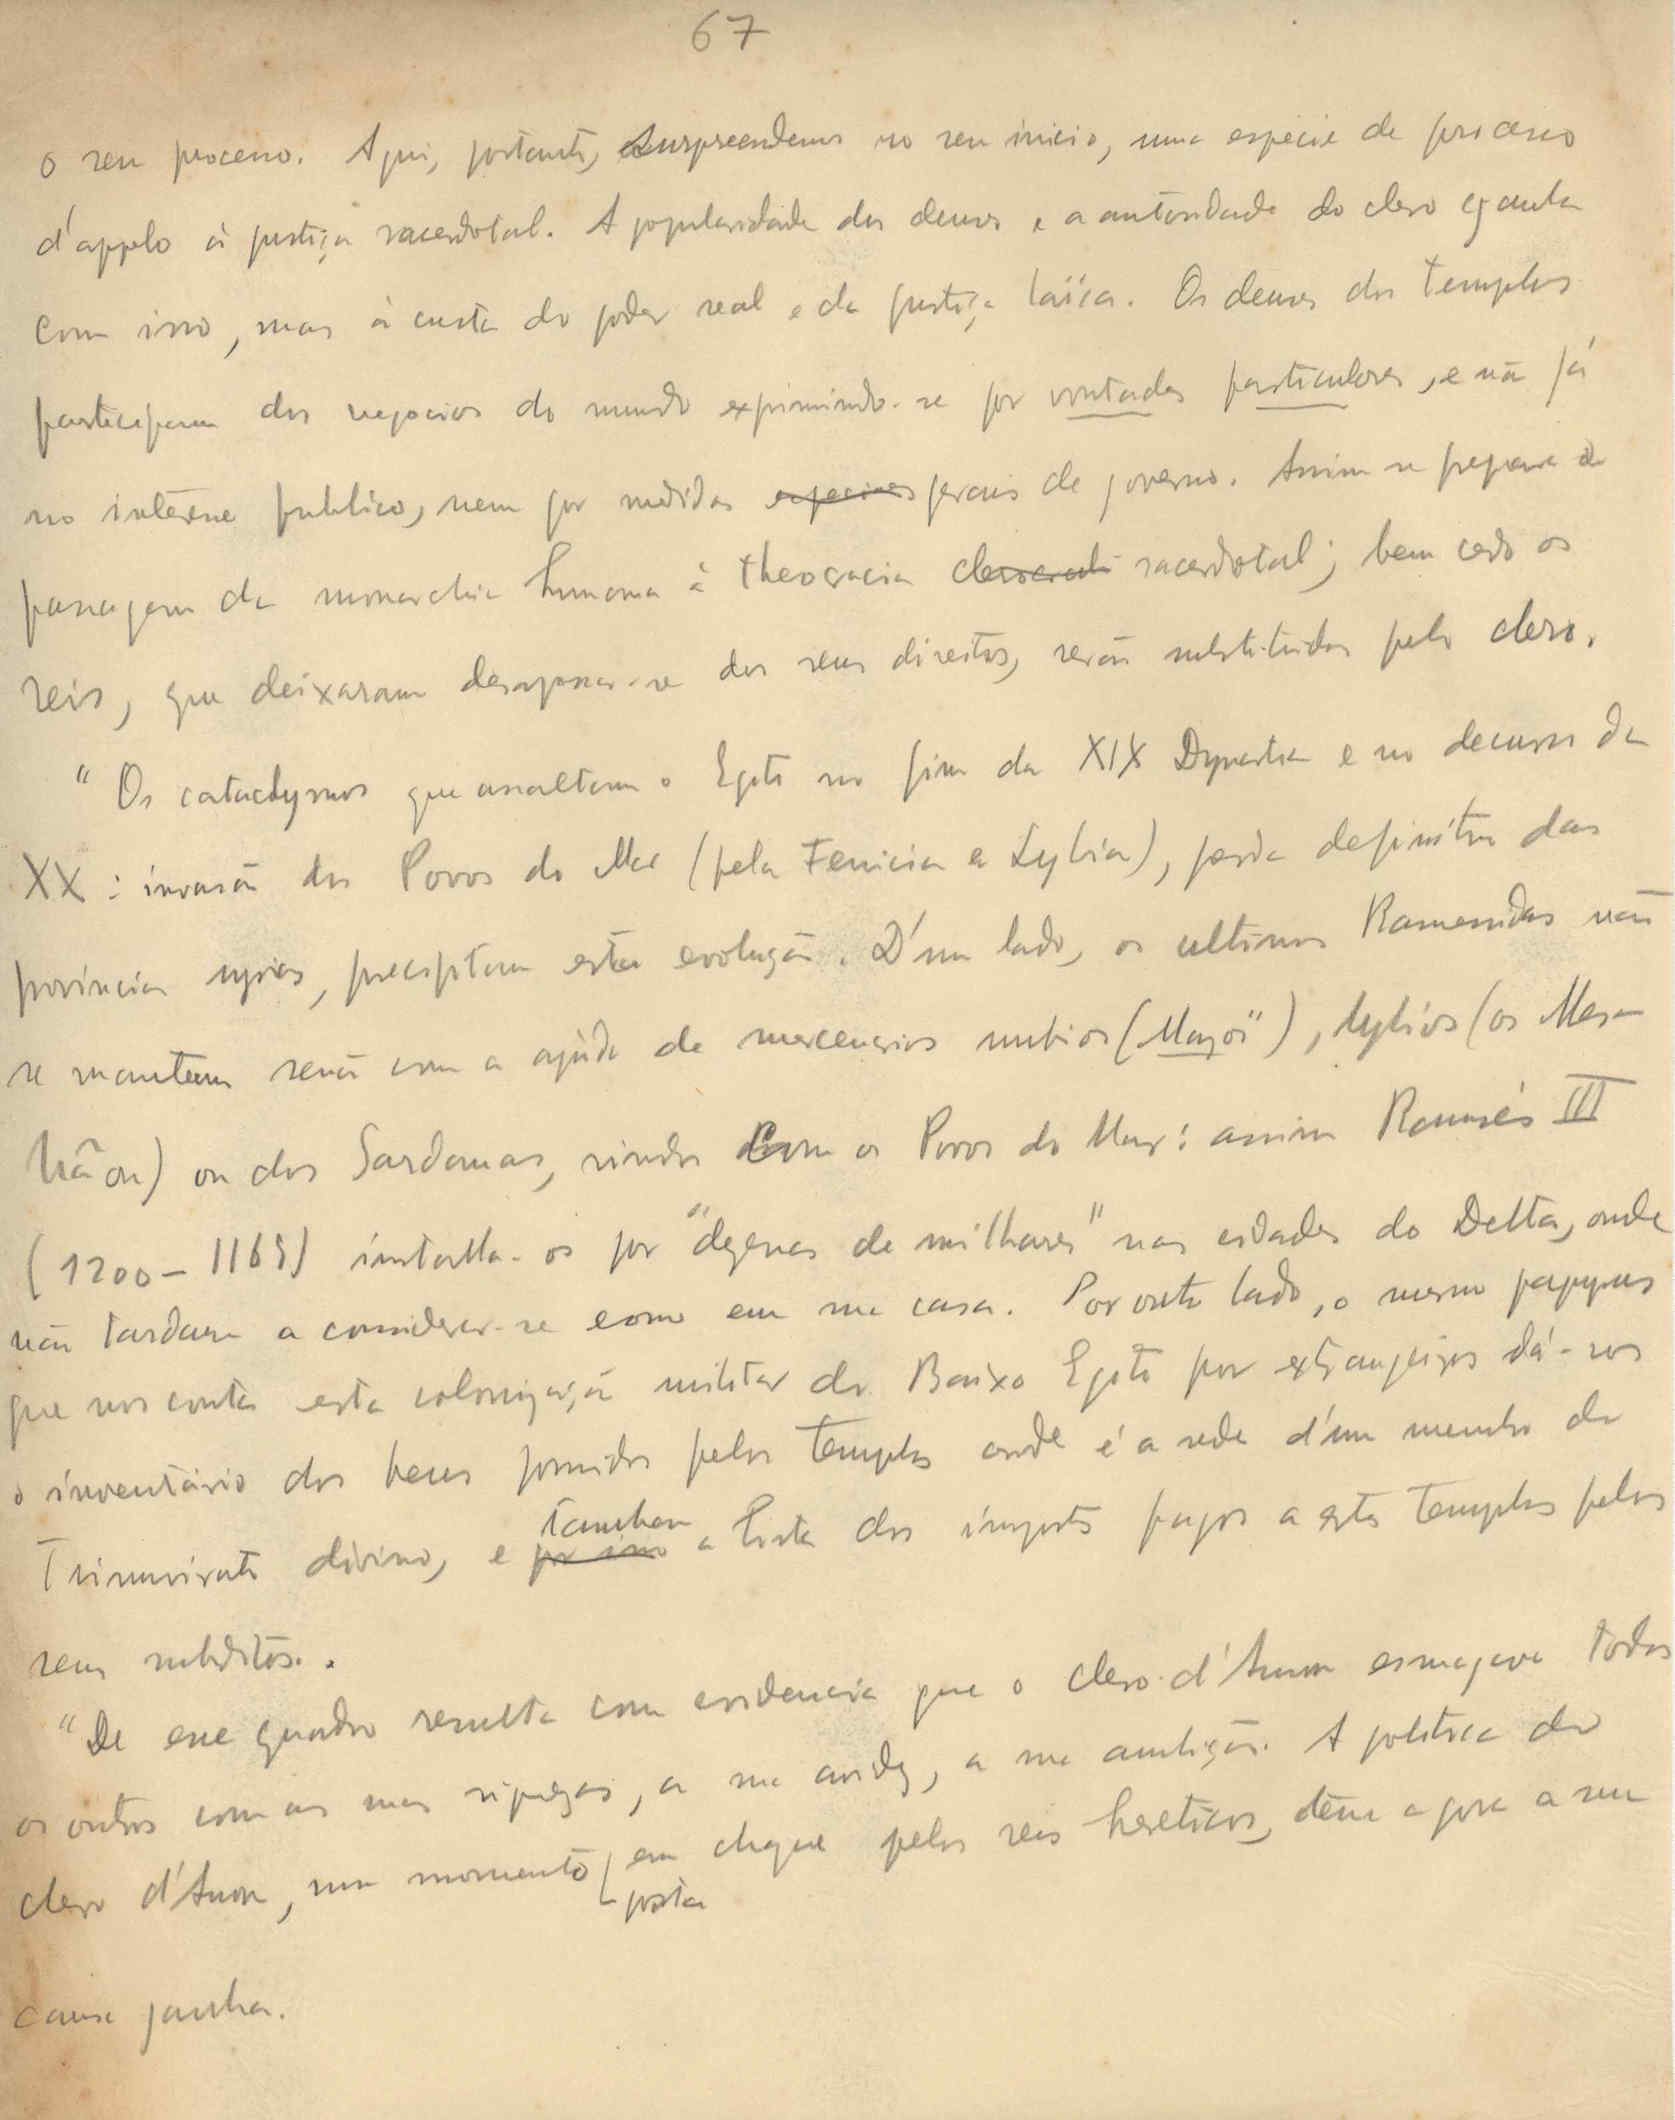 67
o seu processo. Aqui, portanto, surpreendemos no seu inicio, uma especie de processo
d'appelo á justiça sacerdotal. A popularidade dos deuses e a autoridade do clero ganha
com isso, mas á custa do poder real e da justiça laïca. Os deuses dos templos
participam dos negocios do mundo exprimindo-se por vontades particulares, e não já
no interesse publico, nem por medidas especiaes geraes de governo. Assim se prepara a
passagem da monarchia humana á theocracia sacerdotal; bem cedo os
reis, que deixaram desapossar-se dos seus direitos, serão substituidos pelo clero.
"Os cataclysmos que assaltam o Egito no fim da XIX Dynastia e no decurso da
XX: invasão dos Povos do Mar (pela Fenicia e Lybia), perda definitiva das
provincias syrias, precipitam esta evolução. D'um lado, os ultimos Ramessidas não
se manteem senão com a ajuda de mercenarios nubios (Mazoï), lybios (os Mas-
) ou dos Sardanas, vindos com os Povos do Mar: assim Ramsés III
(1200-1169) installa-os por "dezenas de milhares" nas cidades do Delta, onde
não tardam a considerar-se como em sua casa. Por outro lado, o mesmo papyrus
que nos conta esta colonização militar do Baixo Egito por extrangeiros dá-nos
o inventário dos bens possuidos pelos templos onde é a sede d'um membro do
Triumvirato divino, e por isso tambem a lista dos impostos pagos a estes templos pelos
seus subditos.
"De esse quadro resulta com evidencia que o clero d'Amon esmagava todos
os outros com as suas riquezas, a sua avidez, a sua ambição. A politica do
clero d'Amon, um momento posta em cheque pelos reis hereticos, tem agora a sua
causa ganha.